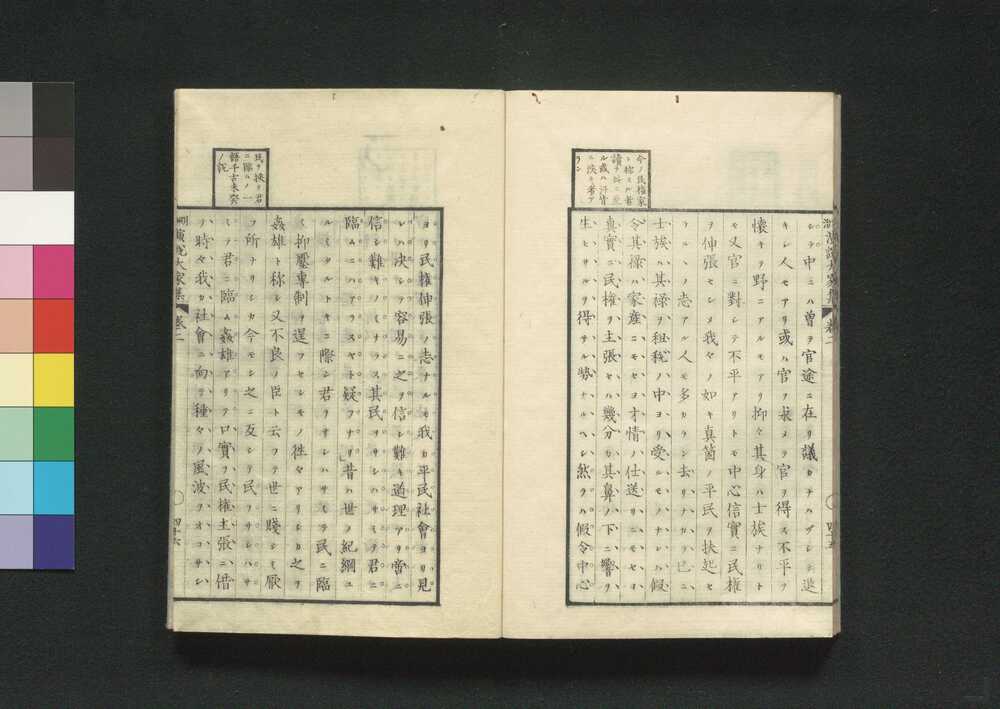 今ノ民權家
ト稱スル者
讀ミ此ニ至
ル或ハ汗背
ニ浹キ者ア
ラン
シテ中ニハ曽テ官途ニ在リ議カナハヅシテ退
キシ人モアリ或ハ官ヲ求メテ官ヲ得ス不平ヲ
懷キヲ野ニアルモアリ抑々其身ハ士族ナリト
モ又官ニ對シテ不平アリトモ中心信實ニ民權
ヲ伸張セシメ我々ノ如キ真箇ノ平民ヲ扶起セ
ントノ志アル人モ多カラン去リナカラ已ニ
士族ハ其祿ヲ租税ノ中ヨリ受ルモノナレハ假
令其祿ハ家産ニモセヨ才情ハ仕送リニモセヨ
真實ニ民權ヲ主張セハ幾分カ其鼻ノ下ニ響ヲ
生セサルヲ得サル勢ナルヘシ然ラハ假令中心
演説大家集 卷二 四十五
ヨリ民權伸張ノ志ナルモ我カ平民社會ヨリ見
レハ决シテ容易ニ之ヲ信シ難キ道理アリ啻ニ
信シ難キノミナラス其民ヲサシハサミテ君ニ
臨ムニハアラスヤト疑フナリ昔ハ世ノ紀綱ユ
ルミタルトキニ際シ君ヲサシハサミテ民ニ臨
ミ抑壓專制ヲ逞フセシモノ徃々アリシカ之ヲ
姦雄ト称シ又不良ノ臣ト云フテ世ニ賤シミ厭
フ所ナリシカ今モシ之ニ反シテ民ヲサシハサ
ミテ君ニ臨ム姦雄アリテ口實ヲ民權主張ニ借
リ時々我カ社會ニ向テ種々ノ風波ヲオコサシ
民ヲ挾テ君
ニ臨ムノ一
語千古未發
ノ説
演説大家集 卷二 四十六